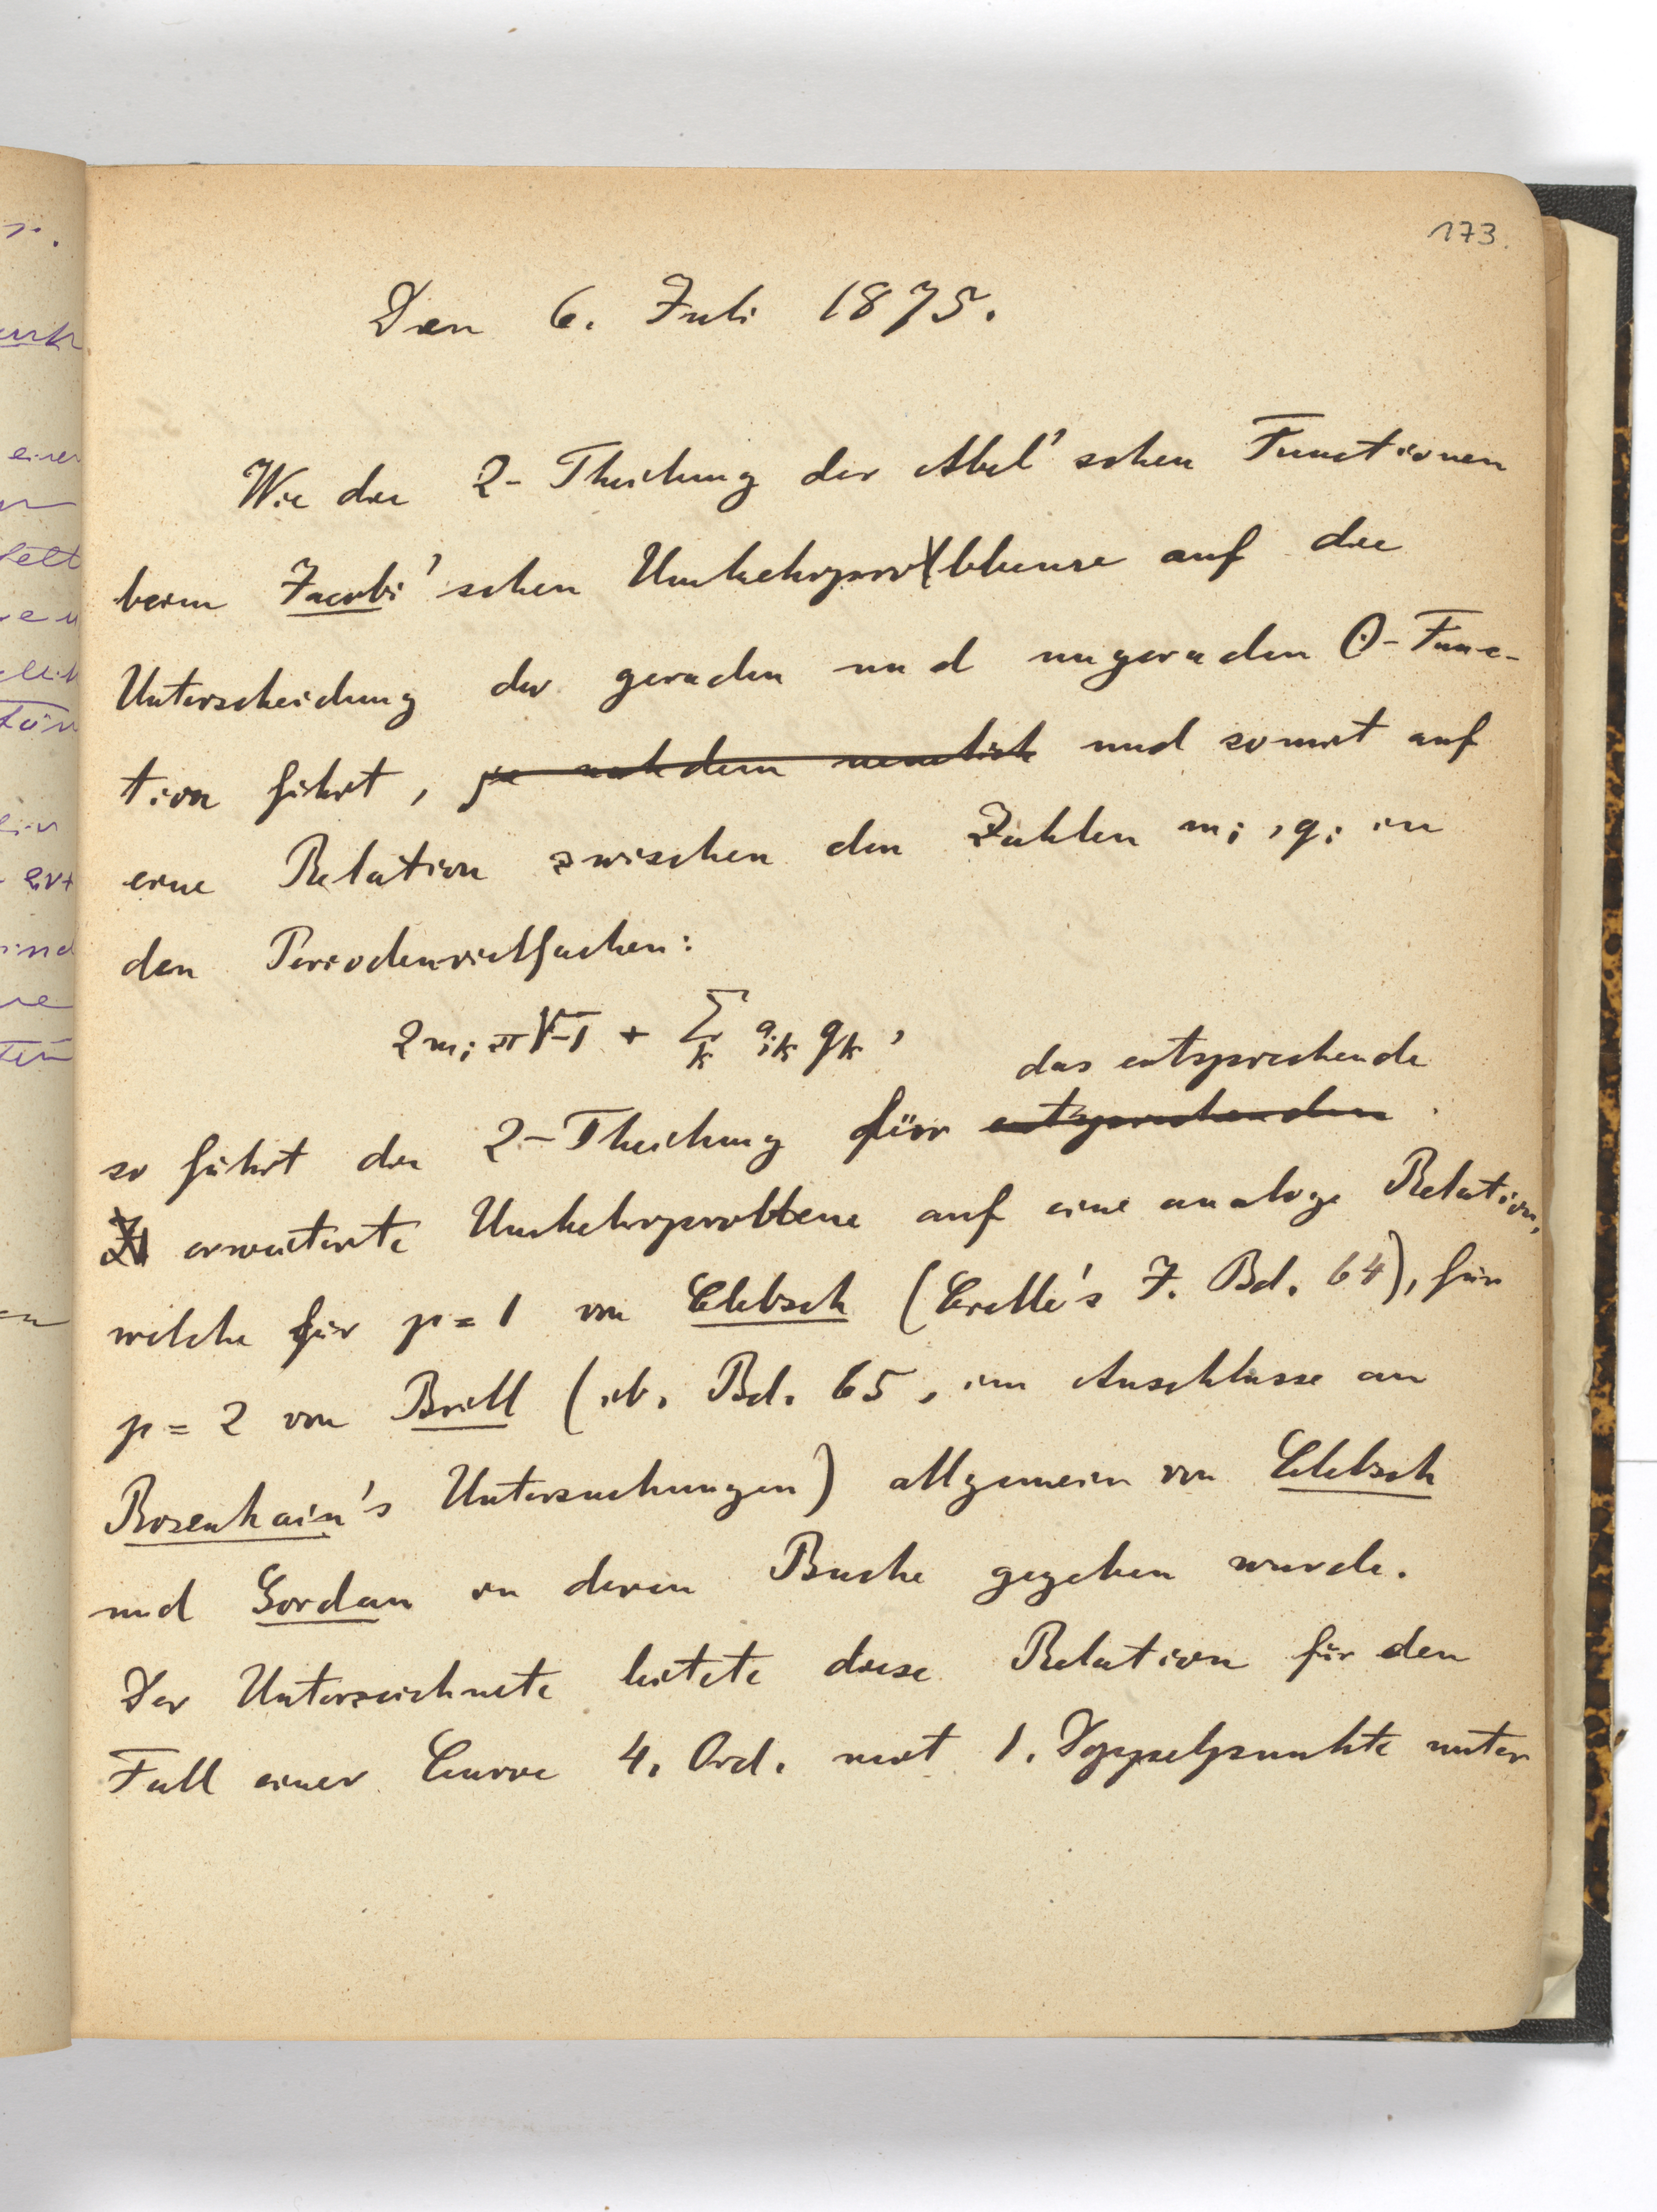 173.
Den 6. Juli 1875.
Wie die 2-Theilung der Abel'schen Functionen
beim Jacobi'schen Umkehrprobleme auf die
Unterscheidung der geraden und ungeraden Θ-Func-
tion führt, je nachdem nemlich und somit auf
eine Relation zwischen den Zahlen mi, qi in
den Periodenvielfachen:
2mi π√-1 + Σk aik qk,
das entsprechende
so führt die 2-Theilung für entsprechenden
erweiterte Umkehrproblem auf eine analoge Relation,
welche für p=1 von Clebsch (Crelle's J. Bd. 64), für
p=2 von Brill (ib. Bd. 65, im Anschlusse an
Rosenhain's Untersuchungen) allgemein von Clebsch
und Gordan in deren Buche gegeben wurde.
Der Unterzeichnete leitete diese Relation für den
Fall einer Curve 4. Ord. mit 1. Doppelpunkte unter